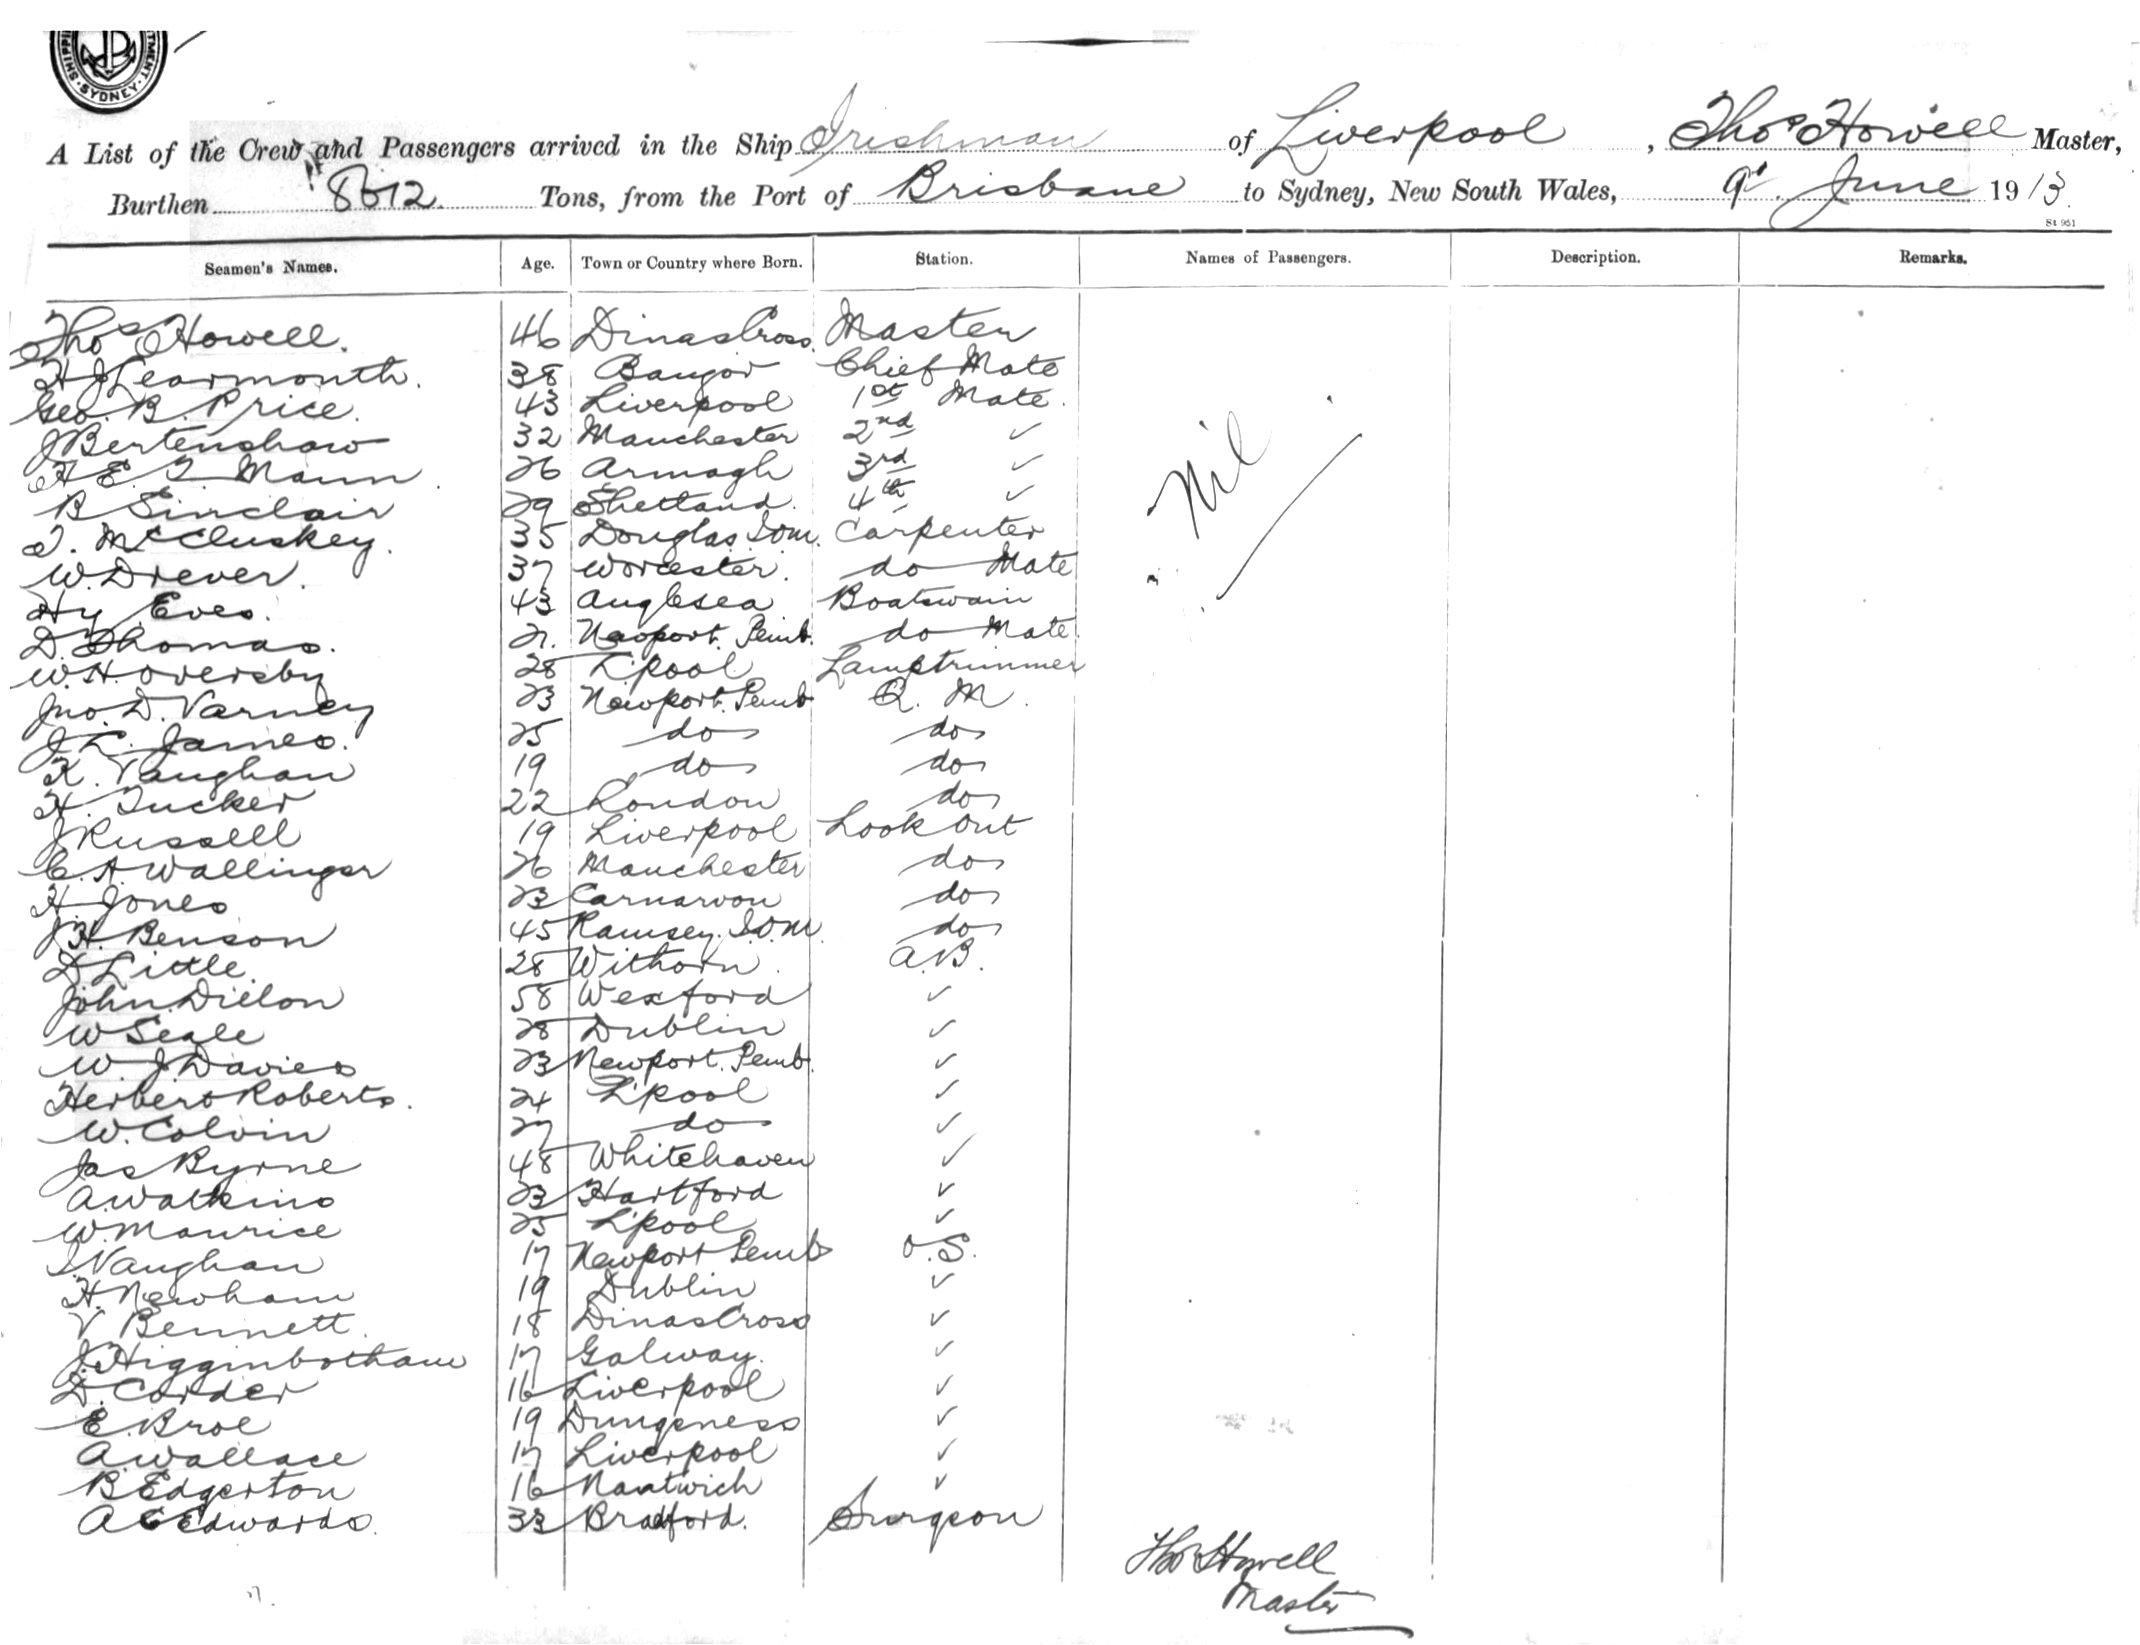 SHIPPI TMENT · SYDNEY ·
A List of the Crew and Passengers arrived in the Ship Irishman of Liverpool, Thos Howell Master,
Burthen Tons, from the Port of Brisbane to Sydney, New South Wales, 9th June 1913
St 951
Seamen's Names. Age. Town or Country where Born. Station. Names of Passengers. Description. Remarks.
Thos Howell. 46 Dinas Cross. Master
H J Learmonth. 38 Bangor Chief Mate
Geo. B. Price. 43 Liverpool 1st Mate.
J Bertenshaw 32 Manchester 2nd ✓
H E T Mann. 26 Armagh 3rd ✓
B Sinclair 29 Shetland. 4th ✓
Nil
T. McCluskey. 35 Douglas IOM. Carpenter
W. Drever. 37 Worcester. do Mate
Hy Eves. 43 Anglesea Boatswain
D. Thomas. 21. Newport. Pemb. do Mate.
W. H. Oversby 28 L'pool Lamptrimmer
Jno. D. Varney 23 Newport. Pemb Q. M.
J L. James. 25 do do
K. Vaughan 19 do do
H. Tucker 22 London do
J Russell 19 Liverpool Look out
C. A Wallinger 26 Manchester do
H. Jones 23 Carnarvon do
J H. Benson 45 Ramsey. I.O.M do
D Little. 28 Withorn. A.B.
John Dillon 58 Wexford ✓
W Seale 28 Dublin ✓
W. J Davies 23 Newport. Pemb. ✓
Herbert Roberts. 24 L'pool ✓
W. Colvin 27 do ✓
Jas Byrne 48 Whitehaven ✓
A. Watkins 23 Hartford ✓
W. Maurice 25 L'pool ✓
J. Vaughan 17 Newport Pemb O.S.
H. Newham 19 Dublin ✓
V Bennett. 18 Dinas Cross ✓
J. Higginbotham 17 Galway. ✓
D. Corder 16 Liverpool ✓
E. Broe 19 Dungeness ✓
A. Wallace 17 Liverpool ✓
B. Edgerton 16 Nantwich ✓
A C Edwards. 33 Bradford. Surgeon
Thos Howell
Master